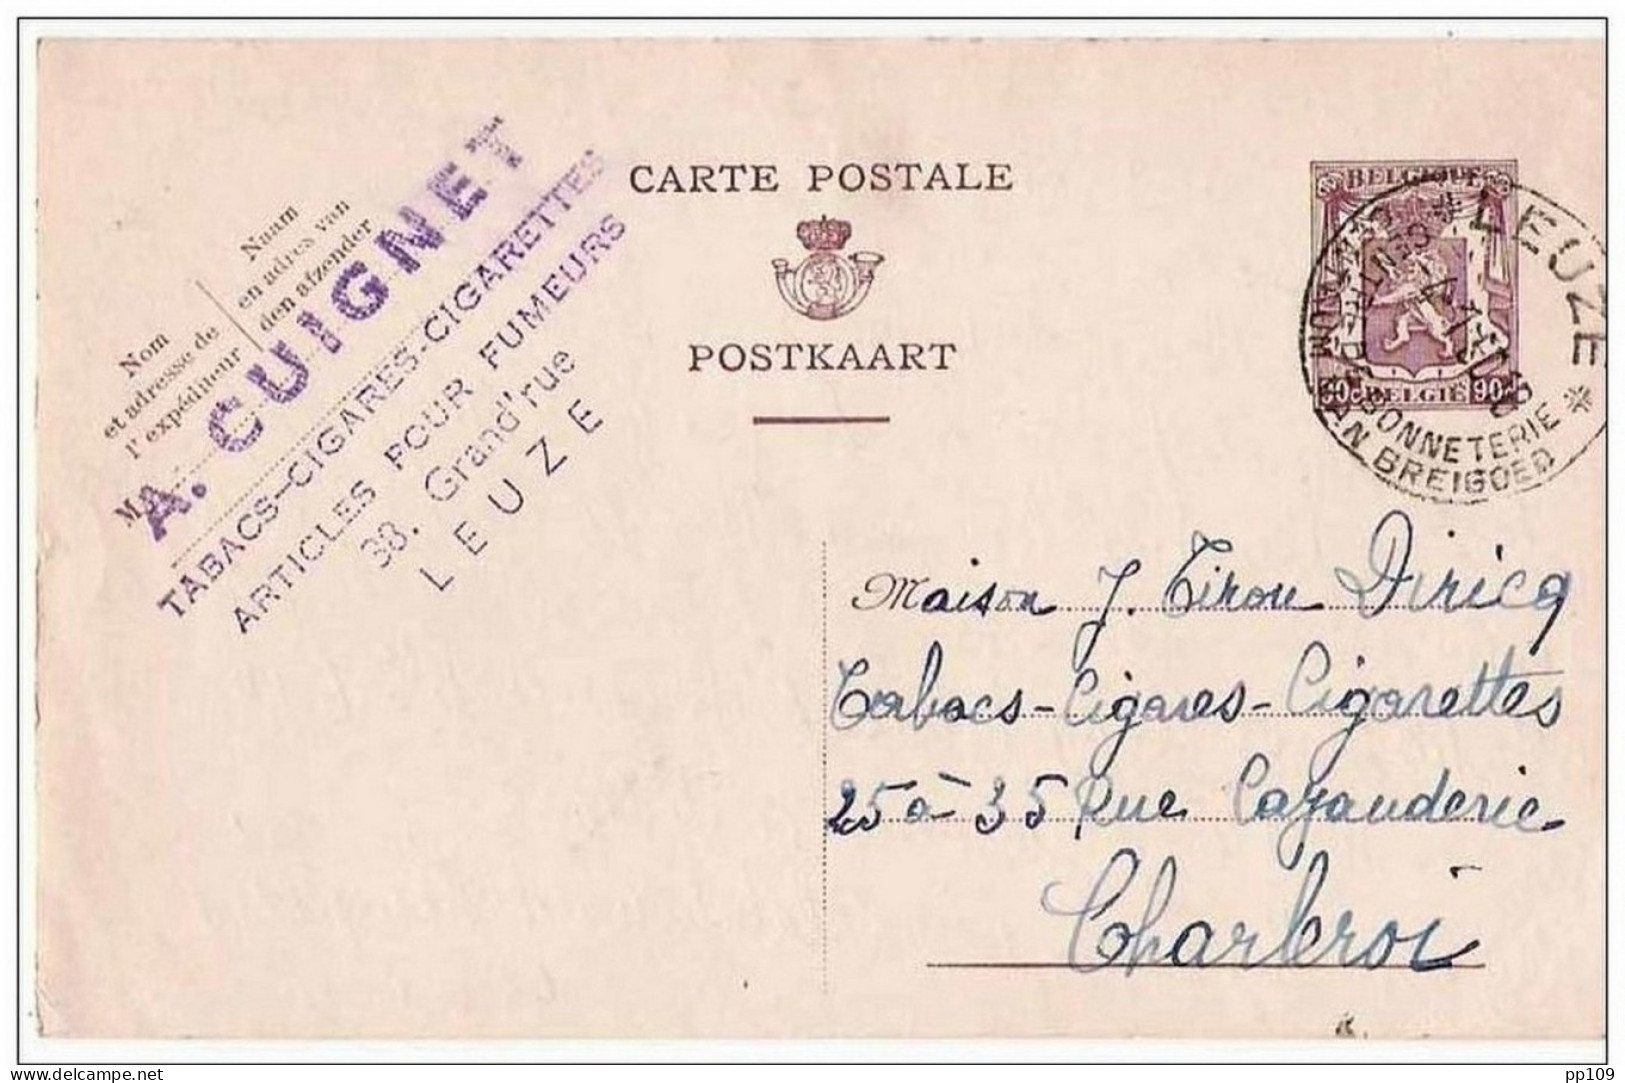 CARTE POSTALE
POSTKAART
Nom
et adresse de
l'expéditeur
Naam
en adres van
den afzender
A. CUIGNET
TABACS-CIGARES-CIGARETTES
ARTICLES POUR FUMEURS
38, Grand'rue
LEUZE
BELGIQUE
90c BELGIE 90c
* LEUZE *
BONNETERIE
BREIGOED
Maison J. Tirou Diricq
Tabacs-Cigares-Cigarettes
25 à 35 Rue Cayauderie
Charleroi
pp109